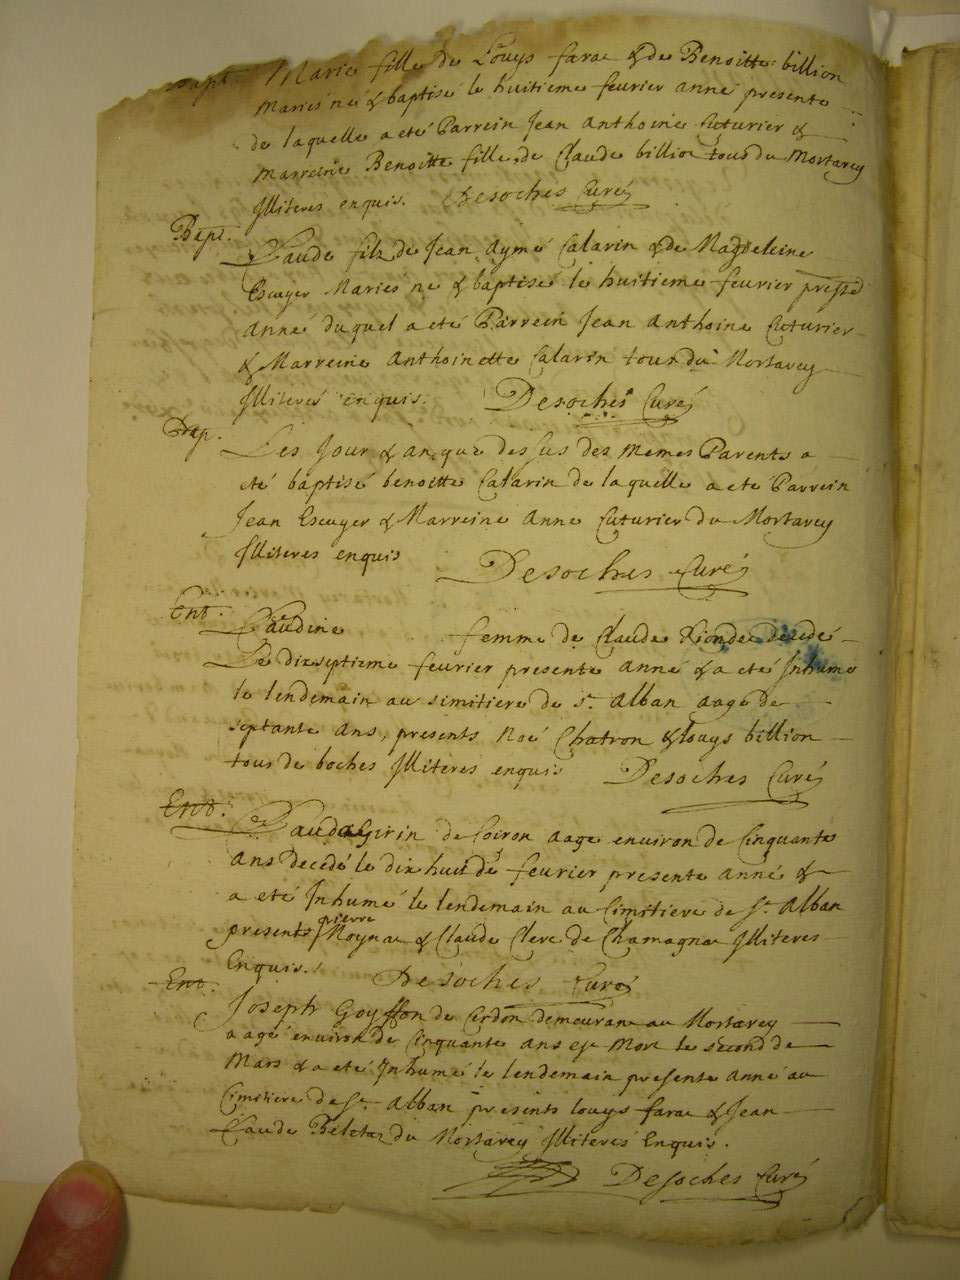 Bapt. Marie fille de Louys farac & de Benoitte billion
Mariés né & baptisé le huitieme fevrier anné presente
de laquelle a eté Parrein Jean Anthoine Cuturier &
Marreine Benoitte fille de Claude billion tous du Mortarey
Illiteres enquis. Desoches Curé
Bapt. Claude filz de Jean Aymé Calarin & de Magdeleine
Escuyer Mariés né & baptisé le huitieme fevrier
Anné duquel a eté Parrein Jean Anthoine Cuturier
& Marreine Anthoinette Calarin tous du Mortarey
Illiteres enquis. Desoches Curé
Bap. Les Jour & an que dessus des Memes Parents a
eté baptisé benoitte Calarin de laquelle a eté Parrein
Jean Escuyer & Marreine Anne Cuturier du Mortarey
Illiteres enquis Desoches Curé
Ent. Claudine femme de Claude decedé
Le dixseptieme fevrier presente anné & a eté Inhumé
le lendemain au simitiere de St. Alban aagé de
septante ans, presents Noé Chatron & louys billion
tous de boches Illiteres enquis Desoches Curé
Ent. Claude Girin de Coiron aagé environ de Cinquante
Ans decedé le dix huit de fevrier presente anné &
a eté Inhumé le lendemain au Cimitiere de St. Alban
presents pierre Moyna & Claude Clerc de Chamagna Illiteres
Enquis. Desoches Curé
Ent. Joseph Goyffon de Cerdon demeurant au Mortarey
aagé environ de Cinquante ans est Mort le second de
Mars & a eté Inhumé le lendemain presente anné au
Cimitiere de St. Alban presents louys farac & Jean
Claude du Mortarey Illiteres Enquis.
Desoches Curé